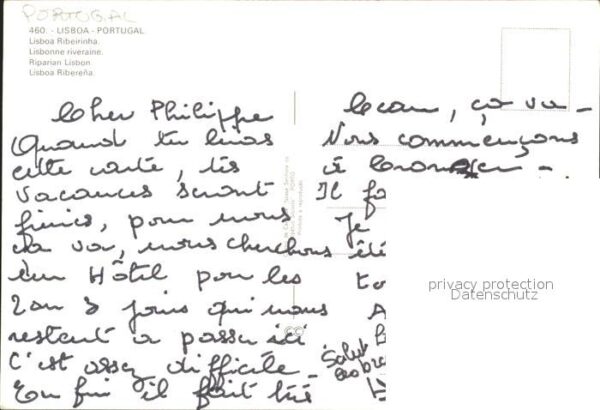 PORTUGAL
460. - LISBOA - PORTUGAL
Lisboa Ribeirinha.
Lisbonne riveraine.
Riparian Lisbon.
Lisboa Ribereña.
Cher Philippe
Quand tu liras
cette carte, tes
vacances seront
finies, pour nous
ça va, nous cherchons
un Hôtel pour les
2 ou 3 jours qui nous
restent à passer ici
C'est assez difficile -
Enfin il fait très
beau, ça va -
Nous commençons
à bronzer -
Il fa
Je
été
to
A
Salut
privacy protection
Datenschutz